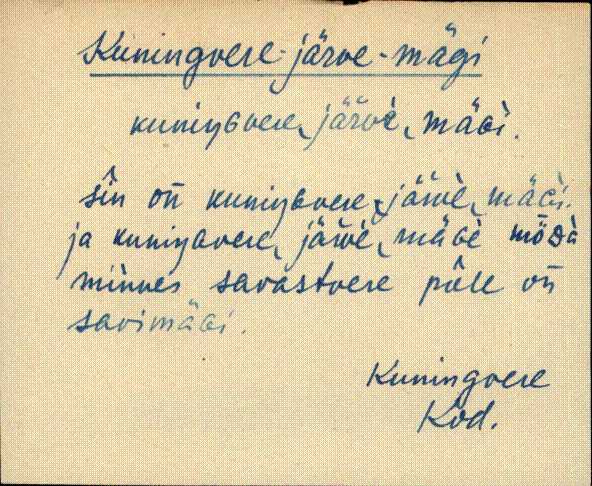 Kuningvere-järve-mägi
kuniŋɢvere‿järvè‿mäɢì.
sîn oñ kuniŋɢvere‿järvè‿mäɢì.
ja kuniŋɢvere‿järvè‿mäɢè möᴅà
minnes savastvere põle oñ
savimäɢi.
Kuningvere
Kod.